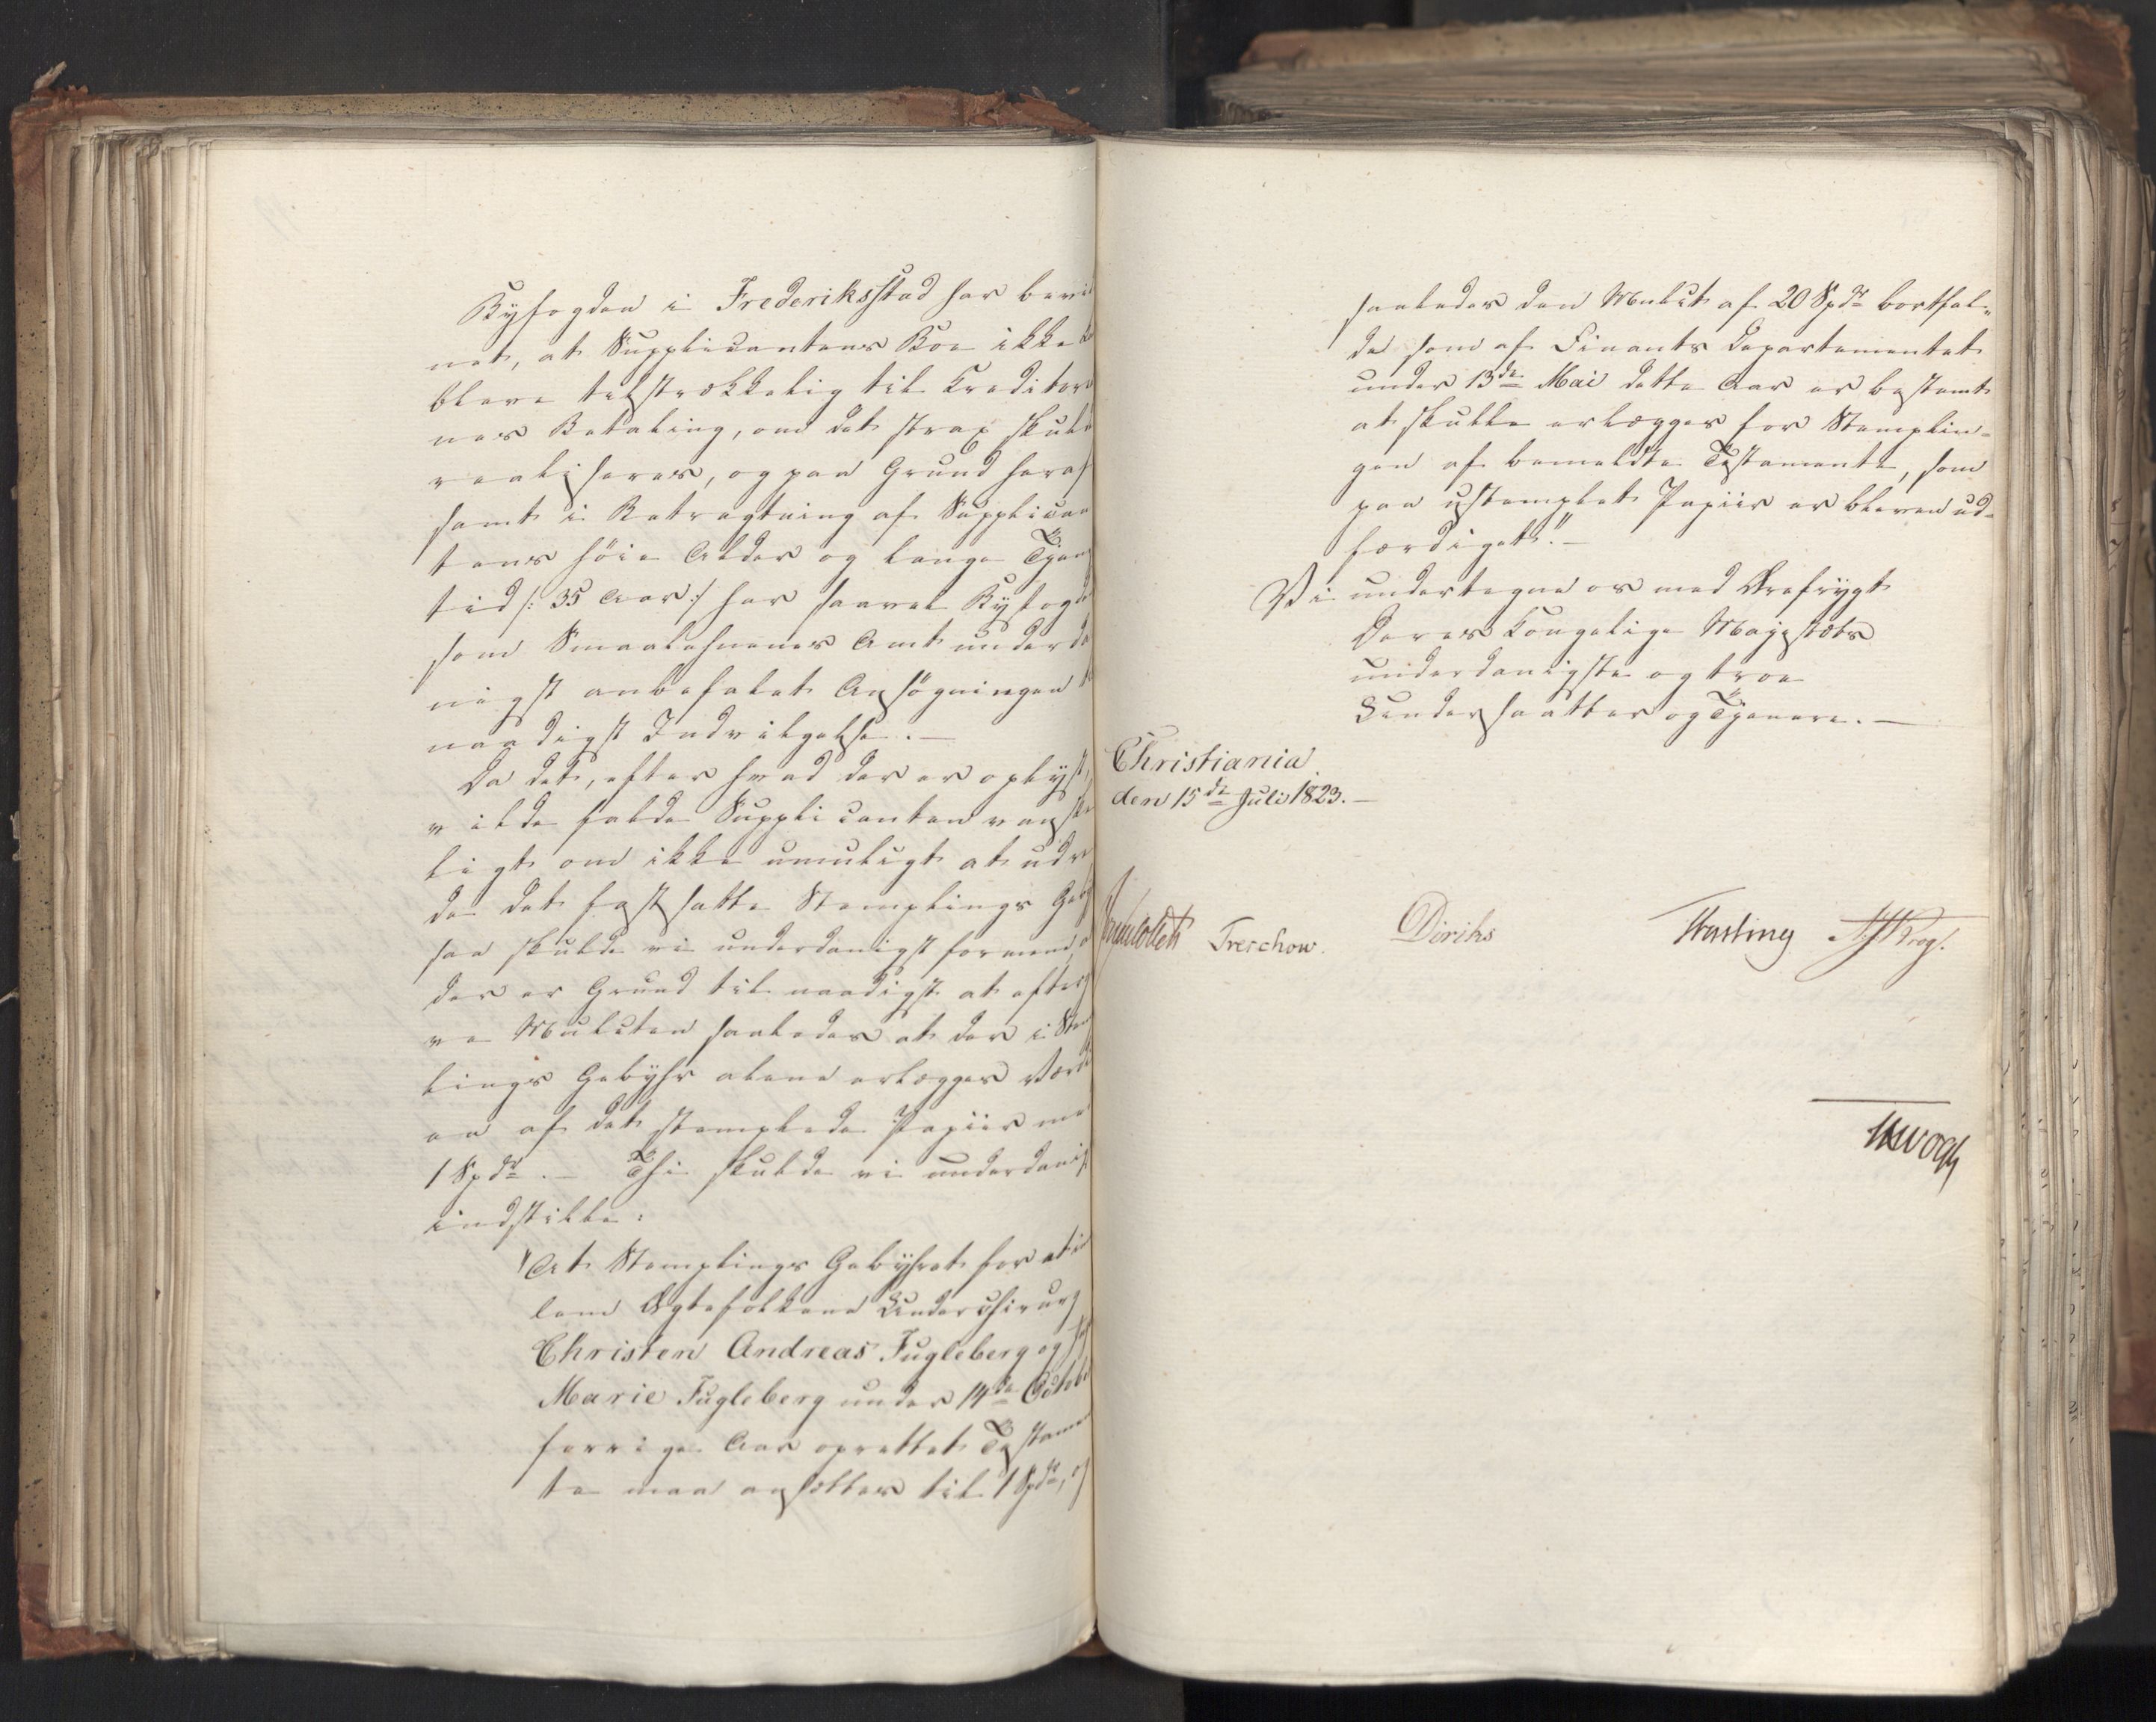 Byfogden i Frederiksstad har bevid
net, at Supplicantens Boe ikke
blever tilstrækkelig til Creditorer
nes Betaling, om det strax skulde
realiseres, og paa Grund heraf
samt i Betragtning af Supplican
tens høie Alder og lange Tjenes
tid /: 35 Aar :/ har saavel Byfogde
som Smaalehnenes Amt underda
nigst anbefalet Ansøgningen
naadigst Indvilgelse. —
Da det, efter hvad der er oplyst,
vilde falde Supplicanten vanske
ligt om ikke umuligt at udre
de det fastsatte Stemplings Geby
saa skulde vi underdanigst formene
der er Grund til naadigst at efterg
ve Mulcten saaledes at der i Stem
lings Gebyhr alene erlægges Værdi
en af det stemplede Papiir me
1 Spdr. — Thi skulde vi underdanigst
indstille:
"At Stemplings Gebyhret for et im
lem Ægtefolkene Underchirurg
Christen Andreas Fugleberg og
Marie Fugleberg under 14de Octobr
forrige Aar oprettet Testamen
te maa ansættes til 1 Spdr, og
saaledes den Mulct af 20 Spdr bortfal-
de som af Finants Departementet
under 13de Mai dette Aar er bestemt
at skulle erlægges for Stemplin-
gen af bemeldte Testamente, som
paa ustemplet Papiir er bleven ud-
færdiget." —
Vi undertegne os med Ærefrygt
Deres Kongelige Majestæts
underdanigste og troe
Undersaatter og Tjenere. —
Christiania
den 15de Juli 1823. —
Treschow. Diriks Hasting Krog.